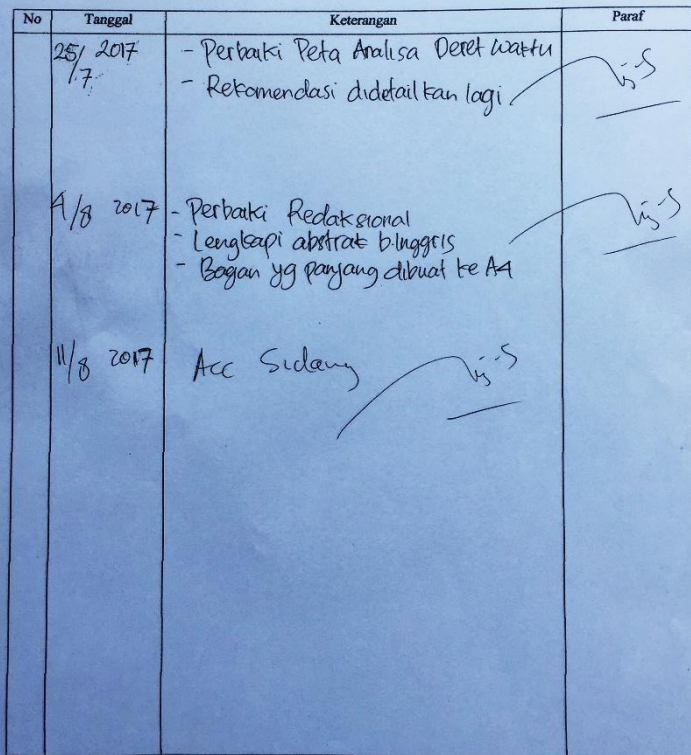 No Tanggal Keterangan Paraf
25/7 2017 - Perbaiki Peta Analisa Deret Waktu
- Rekomendasi didetailkan lagi
4/8 2017 - Perbaiki Redaksional
- Lengkapi abstrak b.Inggris
- Bagan yg panjang dibuat ke A4
11/8 2017 Acc Sidang